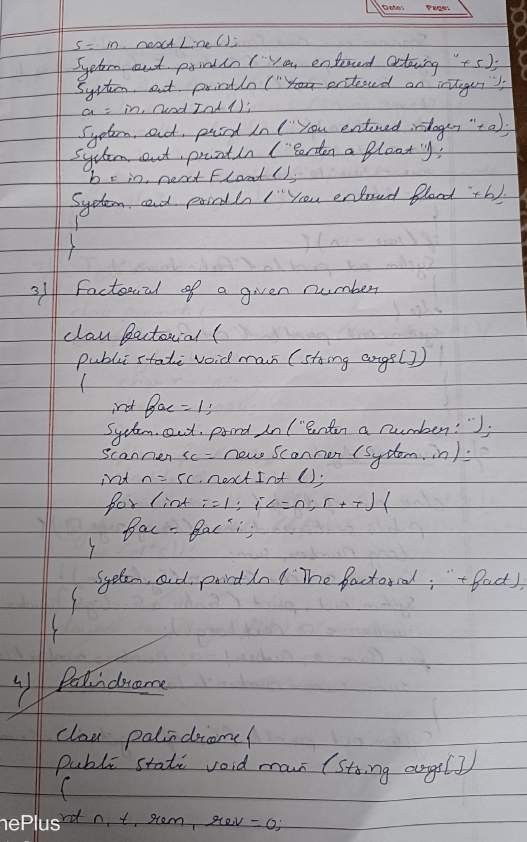 Date: Page:
s = in. next Line ();
System out println ("You entered string "+s);
System. out. println ("You entered an integer");
a = in. next Int ();
System. out. print ln ("You entered integer "+a);
System. out. println ("Enter a float");
b = in. next Float ();
System. out println ("You entered float "+b);
}
}
3) Factorial of a given number
class factorial {
public static void main (string args[])
{
int fac = 1;
System. out. print ln ("Enter a number: ");
Scanner sc = new Scanner (System. in);
int n = sc. next Int ();
for (int i=1; i<=n; i++) {
fac = fac*i;
}
System. out. println ("The factorial ; "+fact);
}
}
4) Palindrome
class palindrome {
public static void main (String args[])
{
int n, t, rem, rev = 0;
nePlus